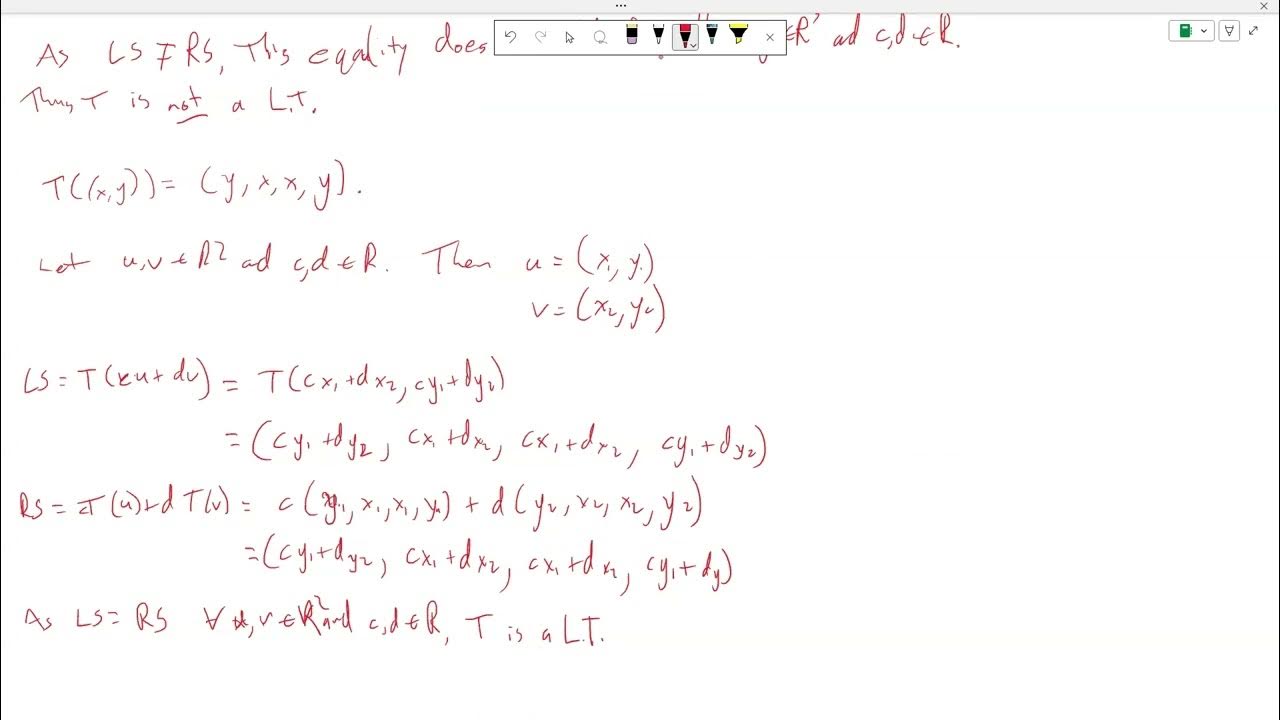 As LS ≠ RS, This equality does ∈ R³ ad c,d ∈ R.
Thus T is not a L.T.
T((x,y)) = (y, x, x, y).
Let u,v ∈ R² ad c,d ∈ R. Then u = (x₁, y₁)
v = (x₂, y₂)
LS = T(cu + dv) = T(cx₁ + dx₂, cy₁ + dy₂)
= (cy₁ + dy₂, cx₁ + dx₂, cx₁ + dx₂, cy₁ + dy₂)
RS = cT(u) + dT(v) = c(y₁, x₁, x₁, y₁) + d(y₂, x₂, x₂, y₂)
= (cy₁ + dy₂, cx₁ + dx₂, cx₁ + dx₂, cy₁ + dy)
As LS = RS ∀ u, v ∈ R² and c,d ∈ R, T is a L.T.